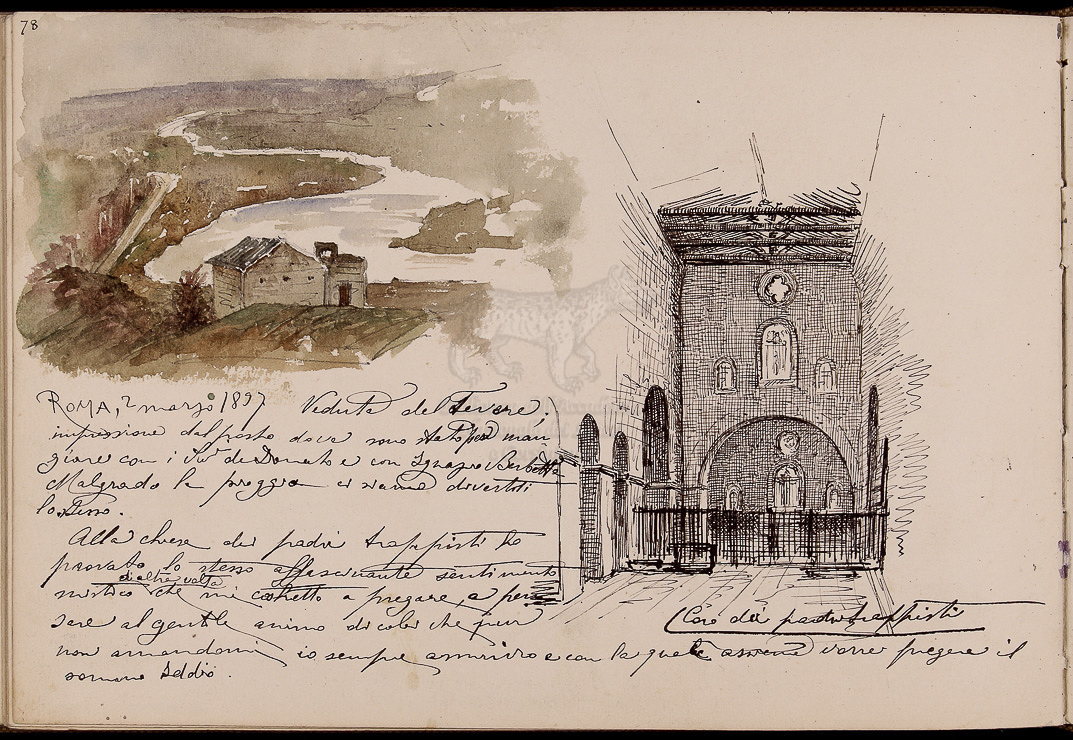 78
ROMA, 2 marzo 1897 Veduta del Tevere.
impressione dal posto dove sono stato per man
giare con i De Donato e con Ignazio
Malgrado la pioggia ci siamo divertiti
lo stesso.
Alla chiesa dei padri trappisti ho
provato lo stesso affascinante sentimento
d'altre volte
mistico che mi costretto a pregare, a pen
sare al gentile animo di colei che pur
non amandomi io sempre ammiro e con la quale assieme vorrei pregare il
sommo Iddio.
Coro dei padri trappisti